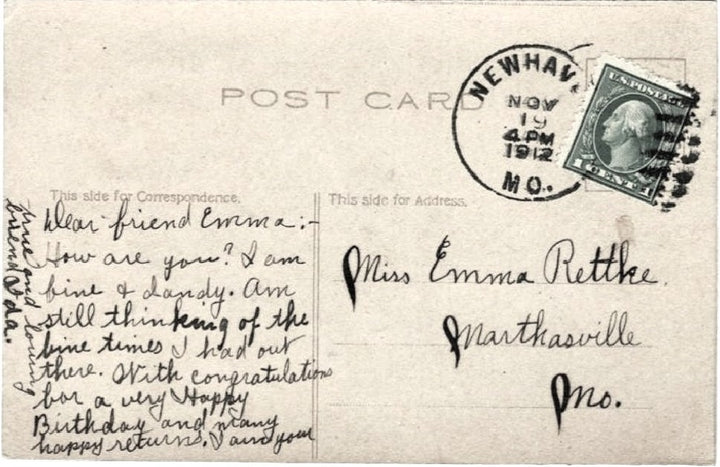 POST CARD
NEWHAV
NOV
19
4 PM
1912
MO.
U.S. POSTA
1 CENT 1
This side for Correspondence.
Dear friend Emma:-
How are you? I am
fine & dandy. Am
still thinking of the
fine times I had out
there. With congratulations
for a very Happy
Birthday and many
happy returns. I am your
true and loving
friend Ida.
This side for Address.
Miss Emma Rettke.
Marthasville
Mo.